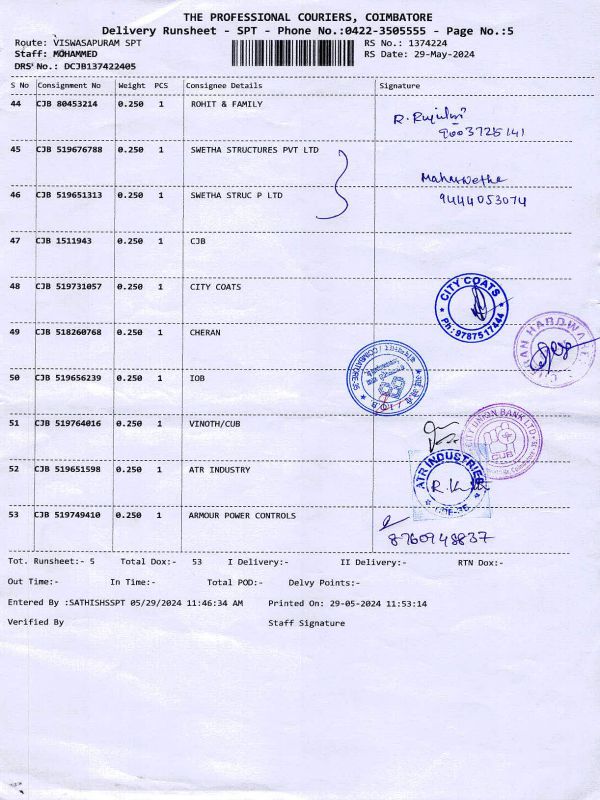 THE PROFESSIONAL COURIERS, COIMBATORE
Delivery Runsheet - SPT - Phone No.:0422-3505555 - Page No.:5
Route: VISWASAPURAM SPT RS No.: 1374224
Staff: MOHAMMED RS Date: 29-May-2024
DRS No.: DCJB137422405
S No Consignment No Weight PCS Consignee Details Signature
44 CJB 80453214 0.250 1 ROHIT & FAMILY
9003725141
45 CJB 519676788 0.250 1 SWETHA STRUCTURES PVT LTD
46 CJB 519651313 0.250 1 SWETHA STRUC P LTD 9444053074
47 CJB 1511943 0.250 1 CJB
48 CJB 519731057 0.250 1 CITY COATS
CITY COATS
Ph:9787517444
49 CJB 518260768 0.250 1 CHERAN
HARDWARE
50 CJB 519656239 0.250 1 IOB
51 CJB 519764016 0.250 1 VINOTH/CUB
CITY UNION BANK LTD
CUB
52 CJB 519651598 0.250 1 ATR INDUSTRY
ATR INDUSTRIES
53 CJB 519749410 0.250 1 ARMOUR POWER CONTROLS
8760948837
Tot. Runsheet:- 5 Total Dox:- 53 I Delivery:- II Delivery:- RTN Dox:-
Out Time:- In Time:- Total POD:- Delvy Points:-
Entered By :SATHISHSSPT 05/29/2024 11:46:34 AM Printed On: 29-05-2024 11:53:14
Verified By Staff Signature